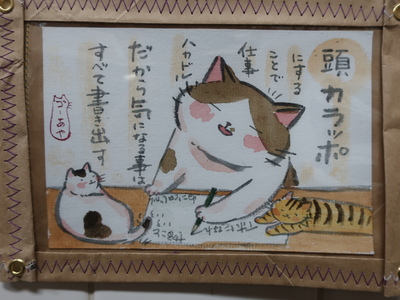 頭カラッポ
にする
ことで
仕事
ハカドール
だから気になる事は
すべて書き出す